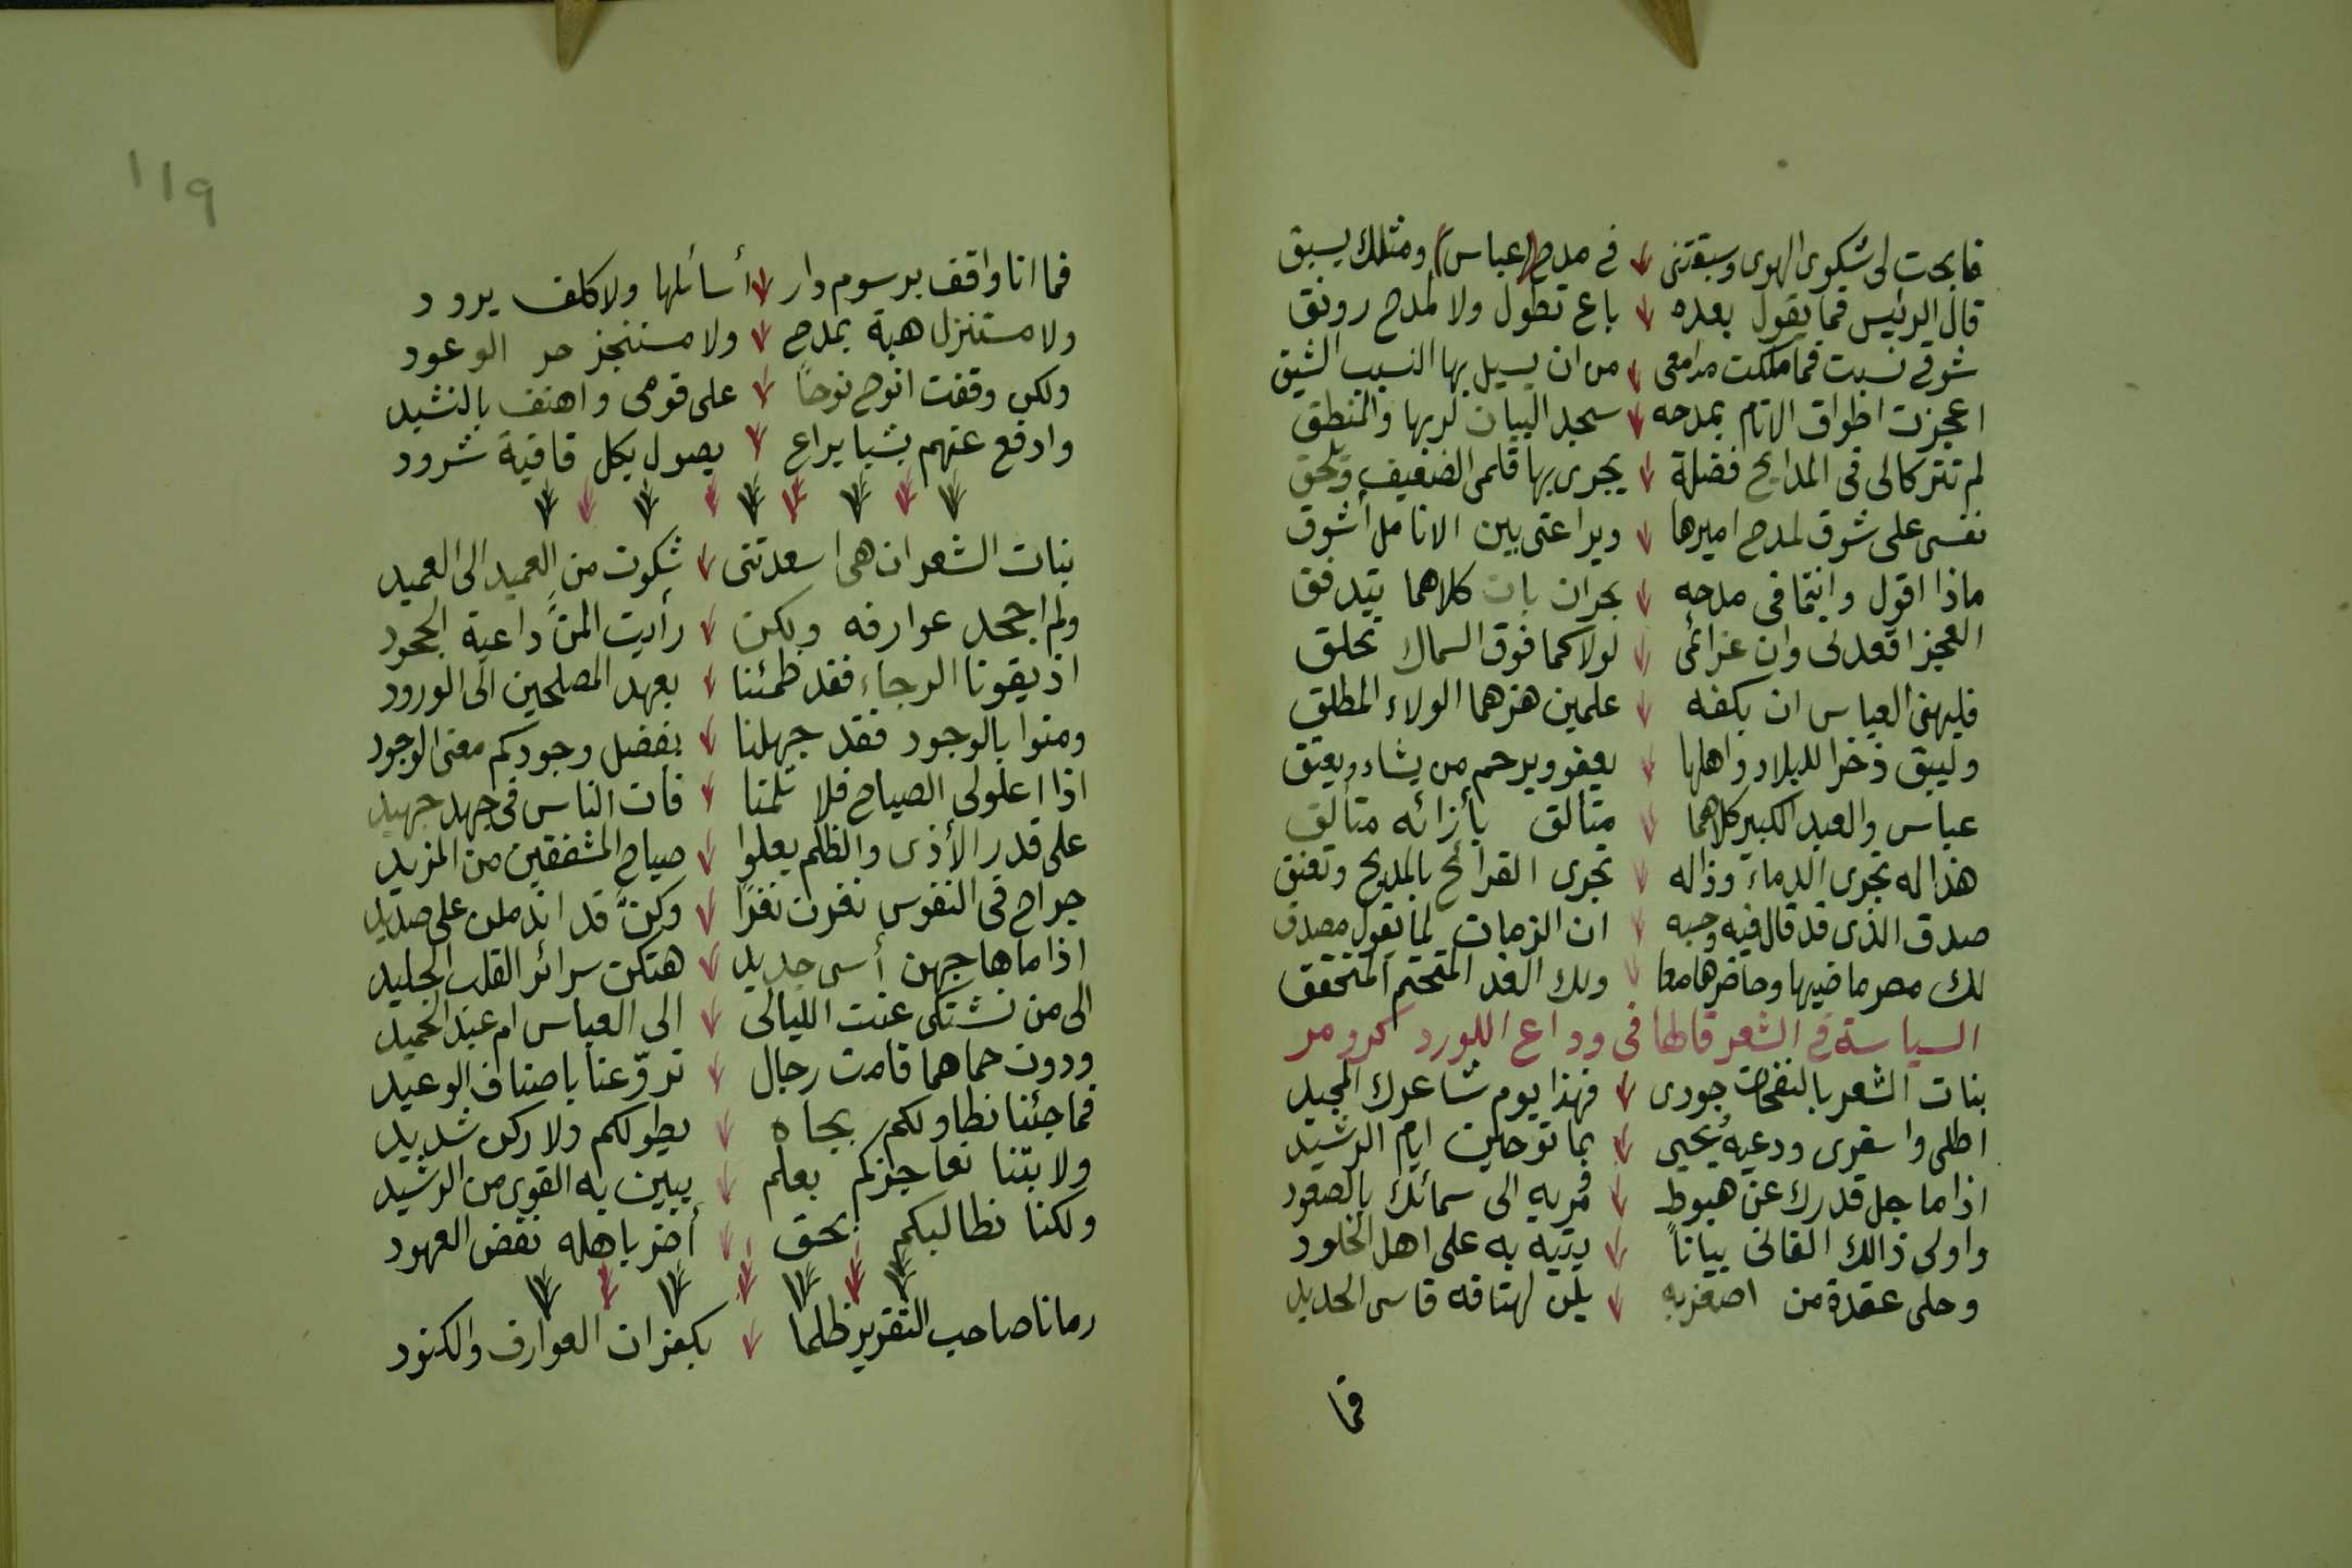 فابحت لى شكوى الهوى وسبقتنى في مدح (عباس) ومثلك يسبق
قال الرئيس فما يقول بعده باع تطول ولا لمدح رونق
شوقي نسبت فما ملكت مدامعى من ان يسيل بها النسيب الشيق
اعجزت اطواق الانام بمدحه سجد البيان لربها والمنطق
لم تتركا لى فى المدايح فضلة يجرى بها قلمى الضعيف ويلحق
نفسى على شوق لمدح اميرها ويراعتى بين الانامل أشوق
ماذا اقول وانتما فى مدحه بحران بات كلاهما يتدفق
العجز اقعدنى وان عزائمى لولاكما فوق السماك تحلق
فليهنئ العباس ان بكفه علمين هزهما الولاء المطلق
وليبق ذخرا للبلاد واهلها يعفو ويرحم من يشاء ويعتق
عباس والعيد الكبير كلاهما متالق بأزائه متألق
هذا له تجرى الدماء وذا له تجرى القرائح بالمديح وتعنق
صدق الذى قد قال فيه وحسبه ان الزمان لما يقول مصدق
لك مصر ماضيها وحاضرها معا ولك الغد المتحتم المتحقق
السياسة في الشعر قالها فى وداع اللورد كرومر
بنات الشعر بالنفحات جودى فهذا يوم شاعرك المجيد
اطلى واسفرى ودعيه يُحيى بما توحين ايام الرشيد
اذا ما جل قدرك عن هبوط فمريه الى سمائك بالصعود
واولى ذالك الفانى بياناً يتيه به على اهل الخلود
وحلى عقدة من اصغريه يلن لهتافه قاسى الحديد
فما
119
فما انا واقف برسوم دار أسائلها ولا كلف برود
ولا مستنزل هبة بمدح ولا مستنجز حر الوعود
ولكن وقفت انوح نوحاً على قومى واهتف بالنشيد
وادفع عنهم بشبا يراع يصول بكل قافية شرود
بنات الشعر ان هى اسعدتنى شكوت من العميد الى العميد
ولم اجحد عوارفه ولكن رأيت المنَّ داعية الجحود
اذيقونا الرجاء فقد ظمئنا بعهد المصلحين الى الورود
ومنوا بالوجود فقد جهلنا بفضل وجودكم معنى الوجود
اذا اعلولى الصياح فلا تلمنا فان الناس فى جهد جهيد
على قدر الأذى والظلم يعلوا صياح المشفقين من المزيد
جراح فى النفوس نغرن نغرًا وكنَّ قد اندملن على صديد
اذا ما هاجهن أسى جديد هتكن سرائر القلب الجليد
الى من نشتكى عنت الليالى الى العباس ام عبد الحميد
ودون حماهما قامت رجال تروّعنا باصناف الوعيد
فما جئنا نطاولكم بجاه يطولكم ولا ركن شديد
ولا بتنا نعاجزكم بعلم يبين به الغوى من الرشيد
ولكنا نطالبكم بحق أضر باهله نقض العهود
رمانا صاحب التقرير ظلما بكفران العوارف والكنود